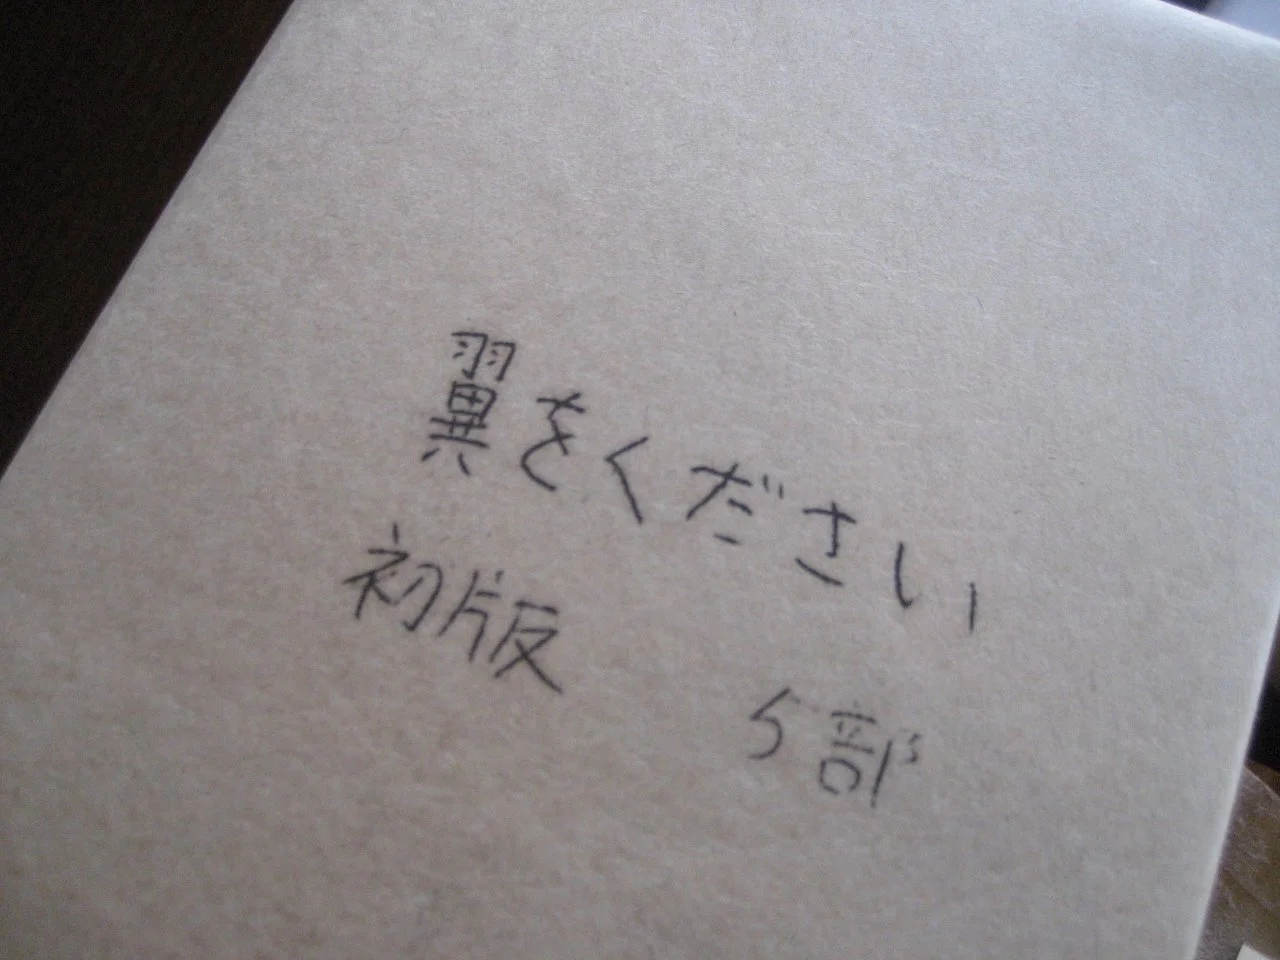 翼をください
初版 5部